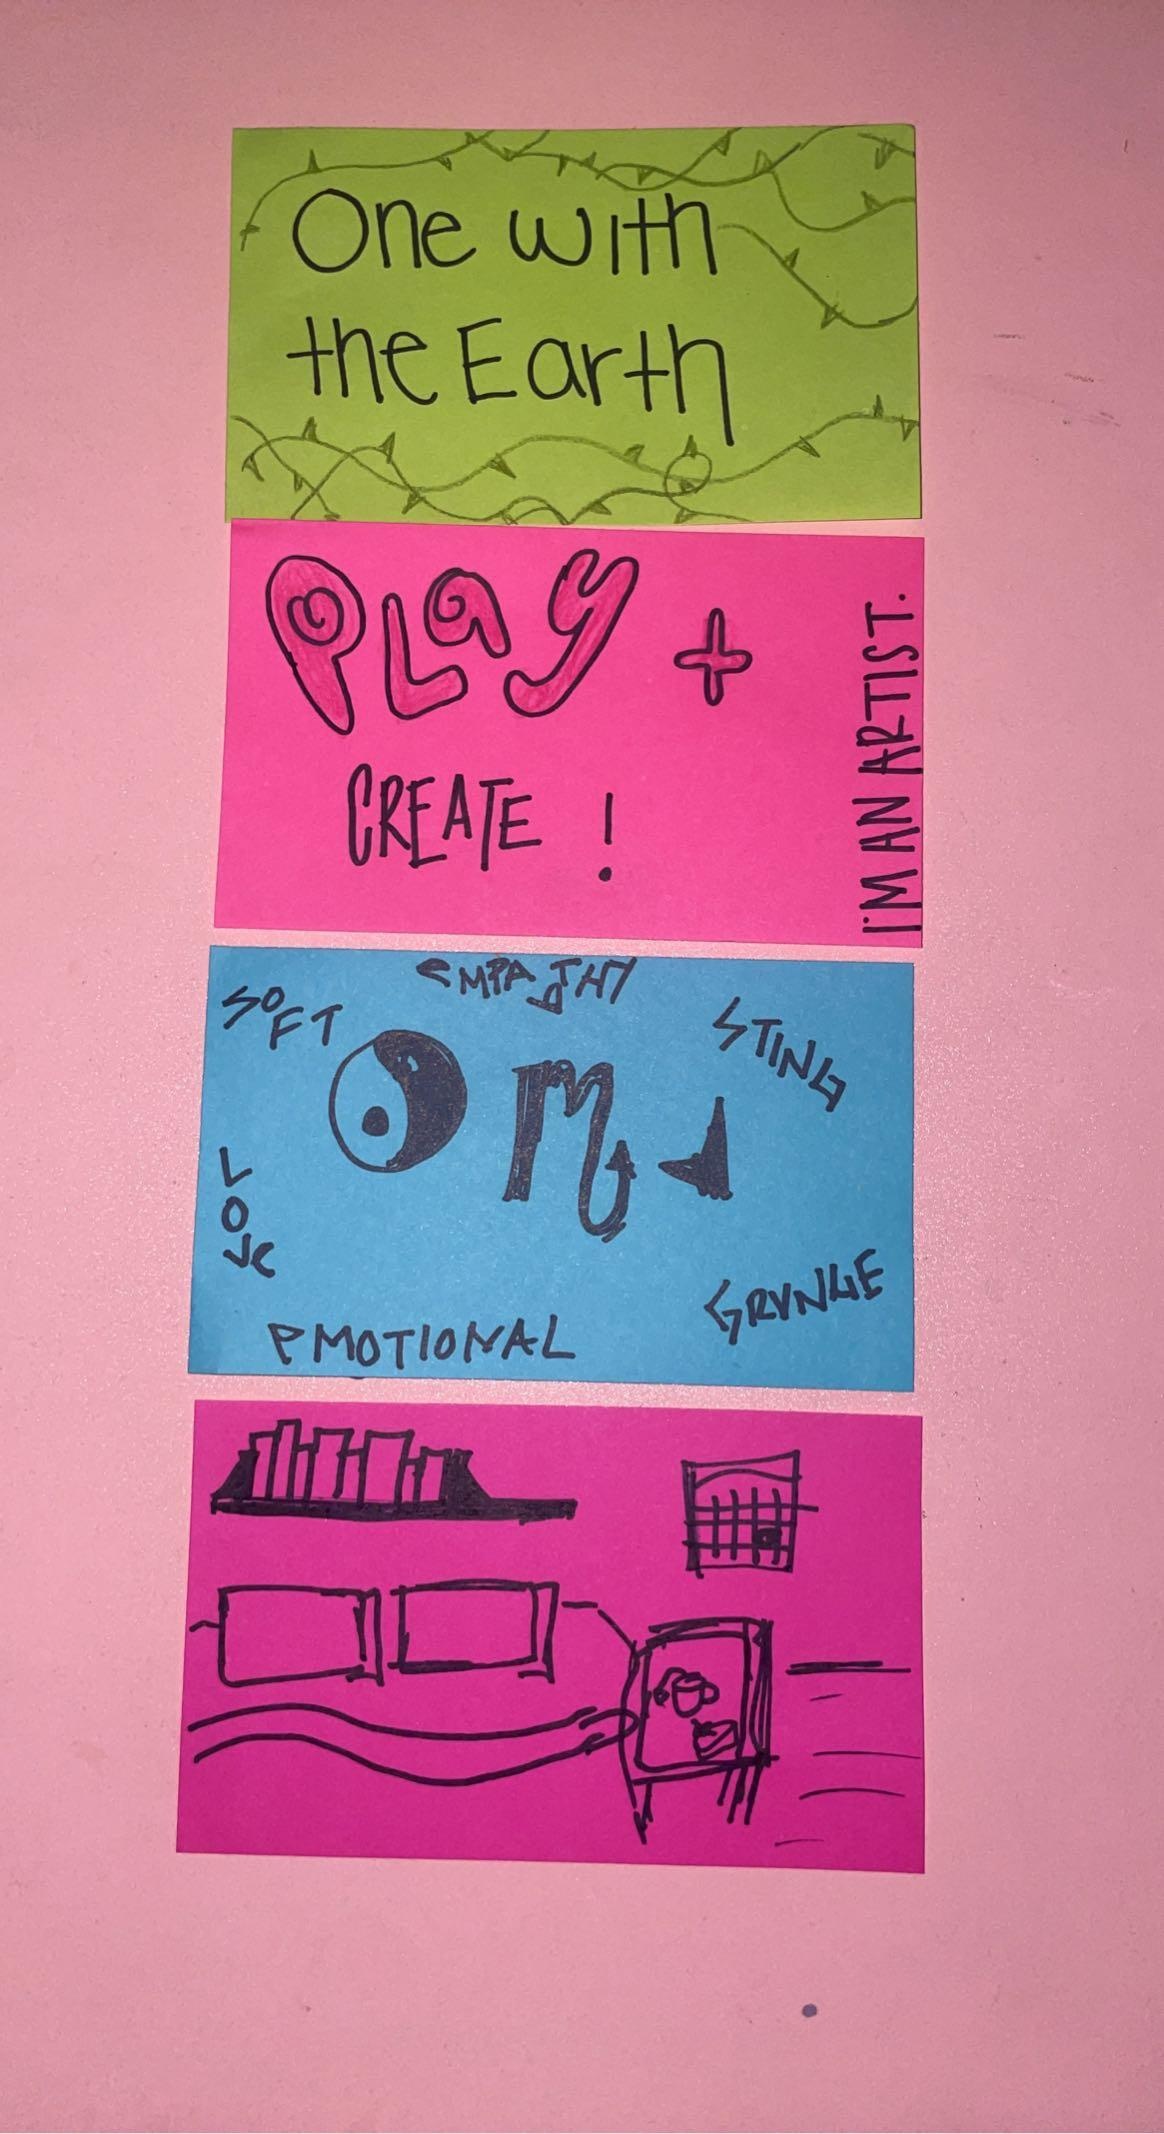 One with
the Earth
PLay +
CREATE !
I'M AN ARTIST.
EMPATHY
SOFT
STING
LOVE
GRUNGE
EMOTIONAL